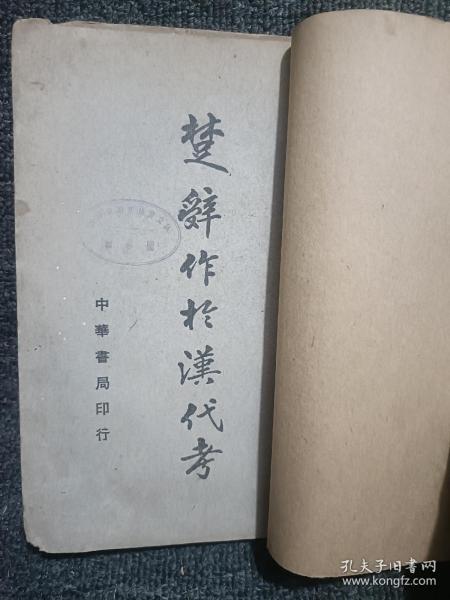 楚辭作於漢代考
中華書局印行
孔夫子旧书网
www.kongfz.com